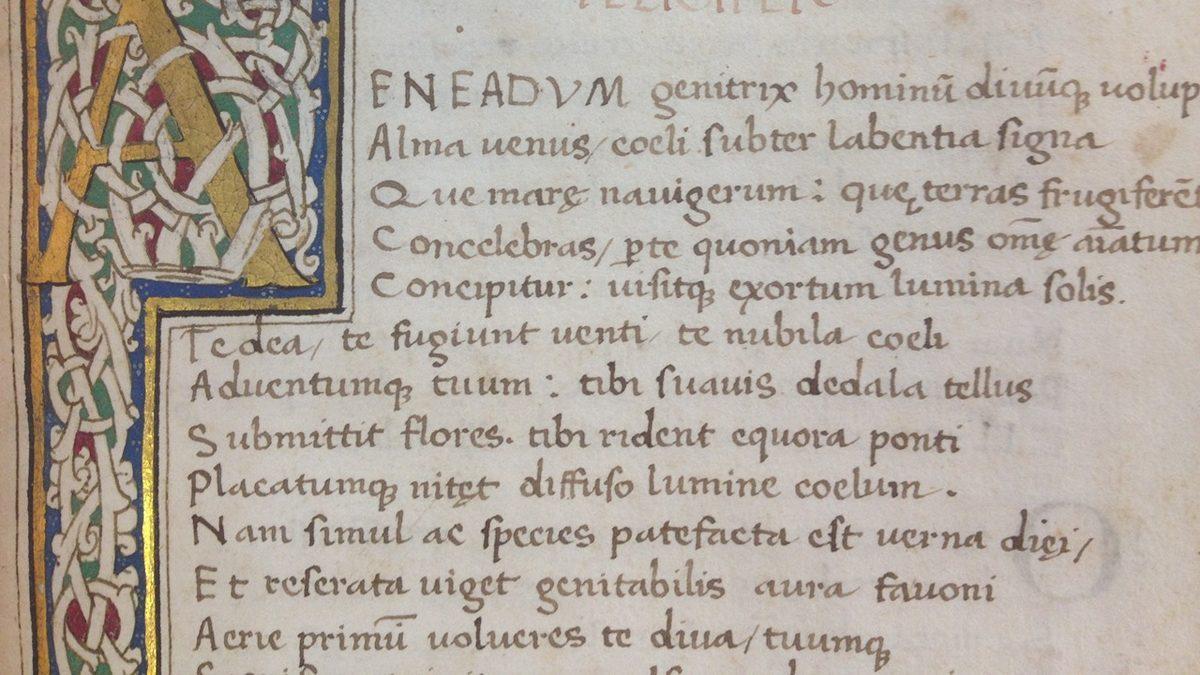 AENEADVM genitrix hominū divūq; volup
Alma venus/ coeli subter labentia signa
Que marę navigerum: quę terras frugiferēt
Concelebras/ ꝑte quoniam genus om̄ę aīatum
Concipitur: visitq; exortum lumina solis.
Te dea/ te fugiunt venti/ te nubila coeli
Adventumq; tuum: tibi suavis dedala tellus
Submittit flores. tibi rident equora ponti
Placatumq; nitęt diffuso lumine coelum.
Nam simul ac species patefacta est verna dięi/
Et reserata viget genitabilis aura favoni
Aerie primū volucres te diva/ tuumq;